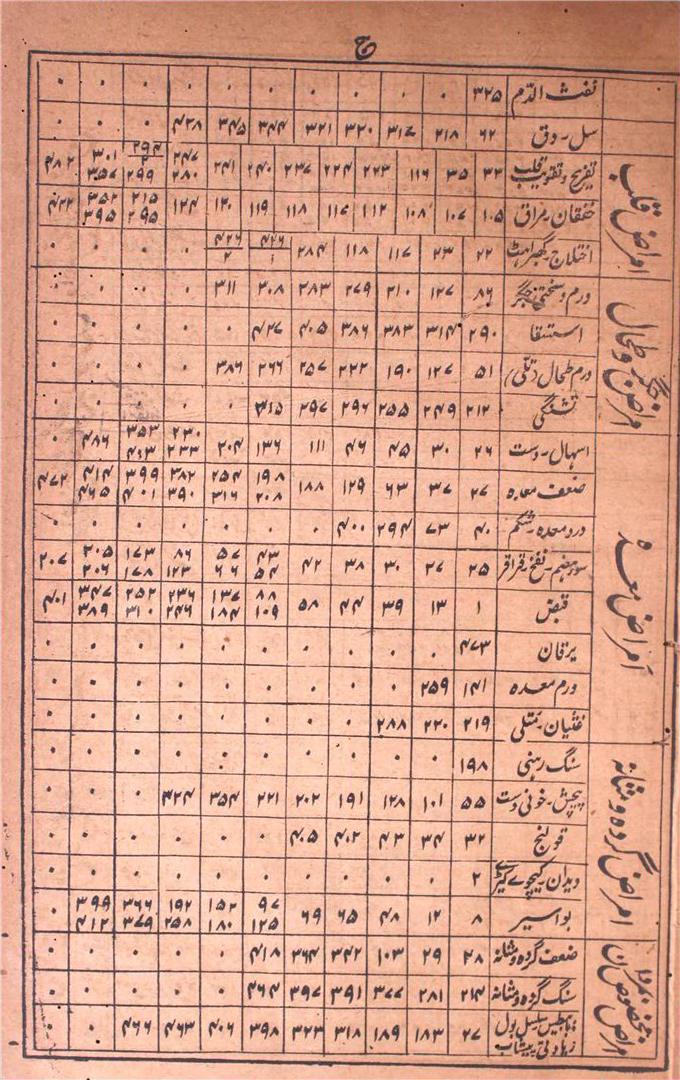 ج
نفث الدّم ۳۲۵ ۰ ۰ ۰ ۰ ۰ ۰ ۰ ۰ ۰ ۰
سل۔دق ۶۲ ۲۱۸ ۳۱۷ ۳۲۰ ۳۲۱ ۳۴۴ ۳۴۵ ۴۲۸ ۰ ۰ ۰
امراض قلب
تفریح و تقویت قلب ۳۲ ۳۵ ۱۱۶ ۲۲۳ ۲۲۴ ۲۳۷ ۲۴۰ ۲۴۱ ۲۴۷ ۲۸۰ ۲۹۴/۲ ۲۹۹ ۳۰۱ ۳۵۷ ۴۸۲
خفقان۔مراق ۱۰۵ ۱۰۷ ۱۰۸ ۱۱۲ ۱۱۷ ۱۱۸ ۱۱۹ ۱۲۰ ۱۲۴ ۲۱۵ ۲۹۵ ۳۵۲ ۳۹۵ ۴۲۲
اختلاج۔گھبراہٹ ۲۲ ۲۳ ۱۱۷ ۱۱۸ ۲۸۴ ۴۲۶/۱ ۴۲۶/۲ ۰ ۰ ۰ ۰
امراض جگر و طحال
ورم و سختی جگر ۸۶ ۱۲۷ ۲۱۰ ۲۷۹ ۲۸۳ ۳۰۸ ۳۱۱ ۰ ۰ ۰ ۰
استسقا ۲۹۰ ۳۱۴ ۳۸۳ ۳۸۶ ۴۰۵ ۴۲۷ ۰ ۰ ۰ ۰ ۰
ورم طحال (تلّی) ۵۱ ۱۲۷ ۱۹۰ ۲۲۲ ۲۵۷ ۲۶۶ ۳۸۶ ۰ ۰ ۰ ۰
تشنگی ۲۱۲ ۲۴۹ ۲۵۵ ۲۹۶ ۲۹۷ ۳۱۵ ۰ ۰ ۰ ۰ ۰
امراض معدہ
اسہال۔دست ۲۶ ۳۰ ۴۵ ۴۶ ۱۱۱ ۱۳۶ ۲۰۴ ۲۳۰ ۲۳۳ ۳۵۳ ۴۰۳ ۴۸۶ ۰
ضعف معدہ ۲۷ ۳۷ ۶۳ ۱۲۹ ۱۸۸ ۱۹۸ ۲۰۸ ۲۵۴ ۳۱۶ ۳۸۲ ۳۹۰ ۳۹۹ ۴۰۱ ۴۱۴ ۴۶۵ ۴۷۲
درد معدہ۔شکم ۴۰ ۷۳ ۲۹۴ ۴۰۰ ۰ ۰ ۰ ۰ ۰ ۰ ۰
سوء ہضم۔نفخ۔قراقر ۲۵ ۲۷ ۳۰ ۳۸ ۴۲ ۴۳ ۵۴ ۵۷ ۶۶ ۸۶ ۱۲۳ ۱۷۳ ۱۷۸ ۲۰۵ ۲۰۶ ۲۰۷
قبض ۱ ۱۳ ۳۹ ۴۴ ۵۸ ۸۸ ۱۰۹ ۱۳۷ ۱۸۴ ۲۳۶ ۲۴۶ ۲۵۲ ۳۱۰ ۳۴۷ ۳۸۹ ۴۰۱
یرقان ۴۷۳ ۰ ۰ ۰ ۰ ۰ ۰ ۰ ۰ ۰ ۰
ورم معدہ ۱۴۱ ۲۵۹ ۰ ۰ ۰ ۰ ۰ ۰ ۰ ۰ ۰
غثیان۔متلی ۲۱۹ ۲۲۰ ۲۸۸ ۰ ۰ ۰ ۰ ۰ ۰ ۰ ۰
امراض گردہ و مثانہ
سنگ رہنی ۱۹۸ ۰ ۰ ۰ ۰ ۰ ۰ ۰ ۰ ۰ ۰
پیچش۔خونی دست ۵۵ ۱۰۱ ۱۲۸ ۱۹۱ ۲۰۲ ۲۲۱ ۳۵۴ ۳۲۴ ۰ ۰ ۰
قولنج ۳۲ ۳۴ ۴۳ ۴۰۲ ۴۰۵ ۰ ۰ ۰ ۰ ۰ ۰
دیدان۔کیچوے کیڑے ۲ ۰ ۰ ۰ ۰ ۰ ۰ ۰ ۰ ۰ ۰
بواسیر ۸ ۱۲ ۴۸ ۶۵ ۶۹ ۹۷ ۱۲۵ ۱۵۲ ۱۸۰ ۱۹۲ ۲۵۸ ۳۶۶ ۳۷۹ ۳۹۹ ۴۱۲ ۰
امراض مخصوص مردان
ضعف گردہ و مثانہ ۲۸ ۲۹ ۱۰۳ ۳۴۲ ۳۶۴ ۴۱۸ ۰ ۰ ۰ ۰ ۰
سنگ گردہ و مثانہ ۲۱۴ ۲۸۱ ۳۷۷ ۳۹۱ ۳۹۷ ۴۶۴ ۰ ۰ ۰ ۰ ۰
ذیابطیس سلسل بول زیادتی پیشاب ۲۷ ۱۸۳ ۱۸۹ ۳۱۸ ۳۲۳ ۳۹۸ ۴۰۶ ۴۶۳ ۴۶۶ ۰ ۰